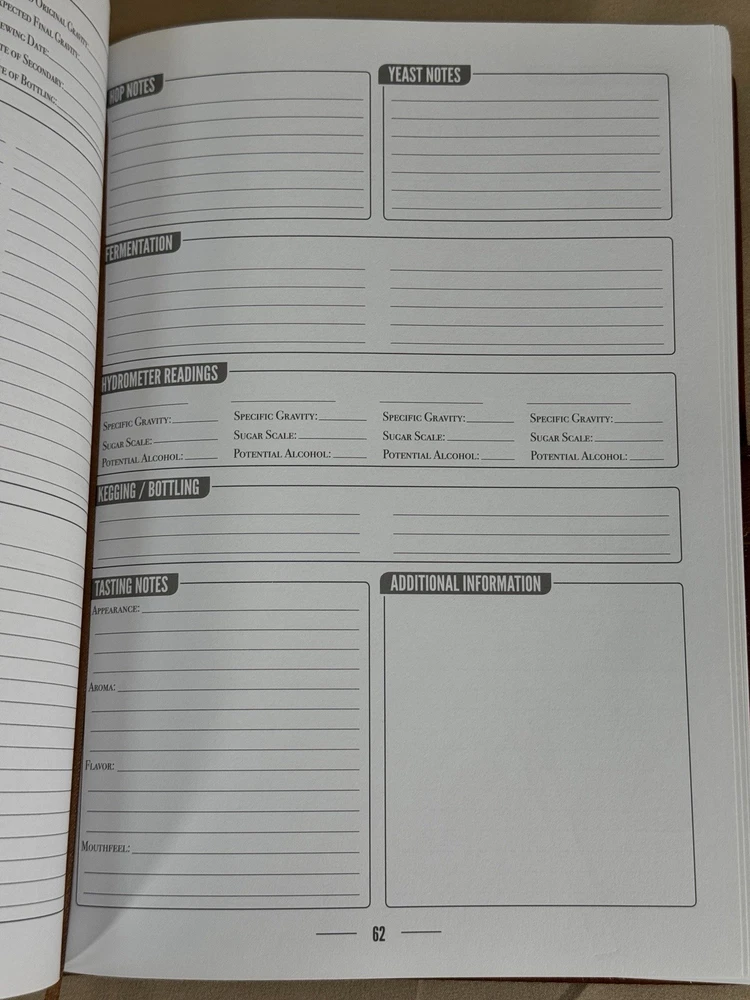 Original Gravity:
Expected Final Gravity:
Brewing Date:
Date of Secondary:
Date of Bottling:
Hop Notes
Yeast Notes
Fermentation
Hydrometer Readings
Specific Gravity: Specific Gravity: Specific Gravity: Specific Gravity:
Sugar Scale: Sugar Scale: Sugar Scale: Sugar Scale:
Potential Alcohol: Potential Alcohol: Potential Alcohol: Potential Alcohol:
Kegging / Bottling
Tasting Notes
Appearance:
Aroma:
Flavor:
Mouthfeel:
Additional Information
62